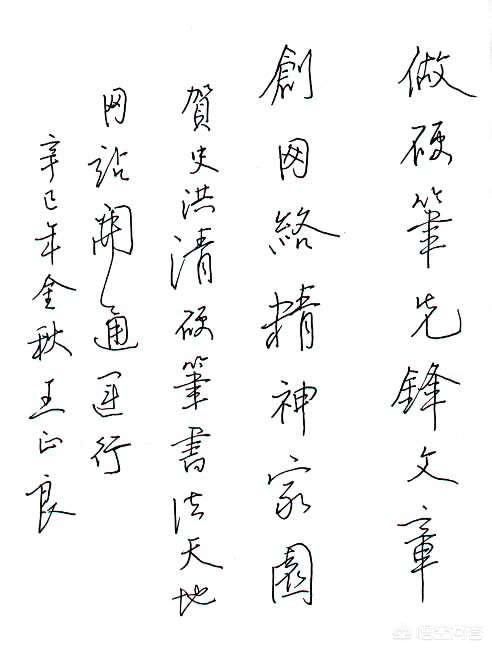 做硬筆先鋒文章
創网絡精神家園
賀史洪清硬筆書法天地
网站開通運行
辛巳年金秋王正良
悟空问答